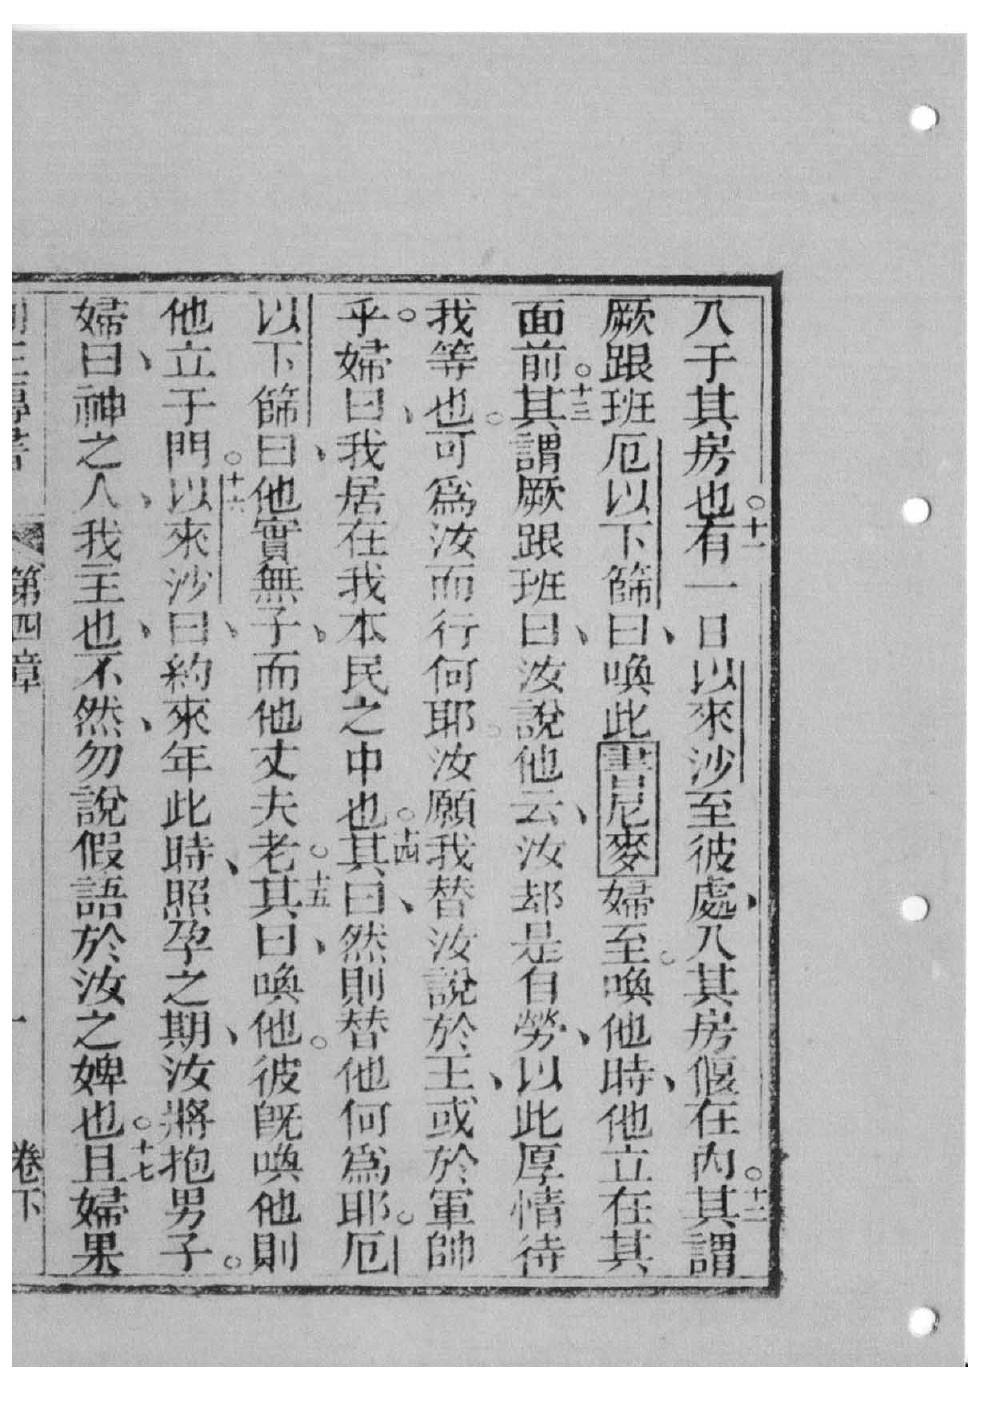 入于其房也。十一有一日以來沙至彼處、入其房偃在內。十二其謂
厥跟班厄以下篩曰、喚此書尼麥婦至。喚他時、他立在其
面前。十三其謂厥跟班曰、汝說他云、汝却是自勞、以此厚情待
我等也。可為汝而行何耶。汝願我替汝說於王、或於軍帥
乎。婦曰、我居在我本民之中也。十四其曰、然則替他何為耶。厄
以下篩曰、他實無子、而他丈夫老。十五其曰、喚他。彼既喚他則
他立于門。十六以來沙曰、約來年此時、照孕之期、汝將抱男子。
婦曰、神之人、我主也、不然、勿說假語於汝之婢也。十七且婦果
第四章 卷下